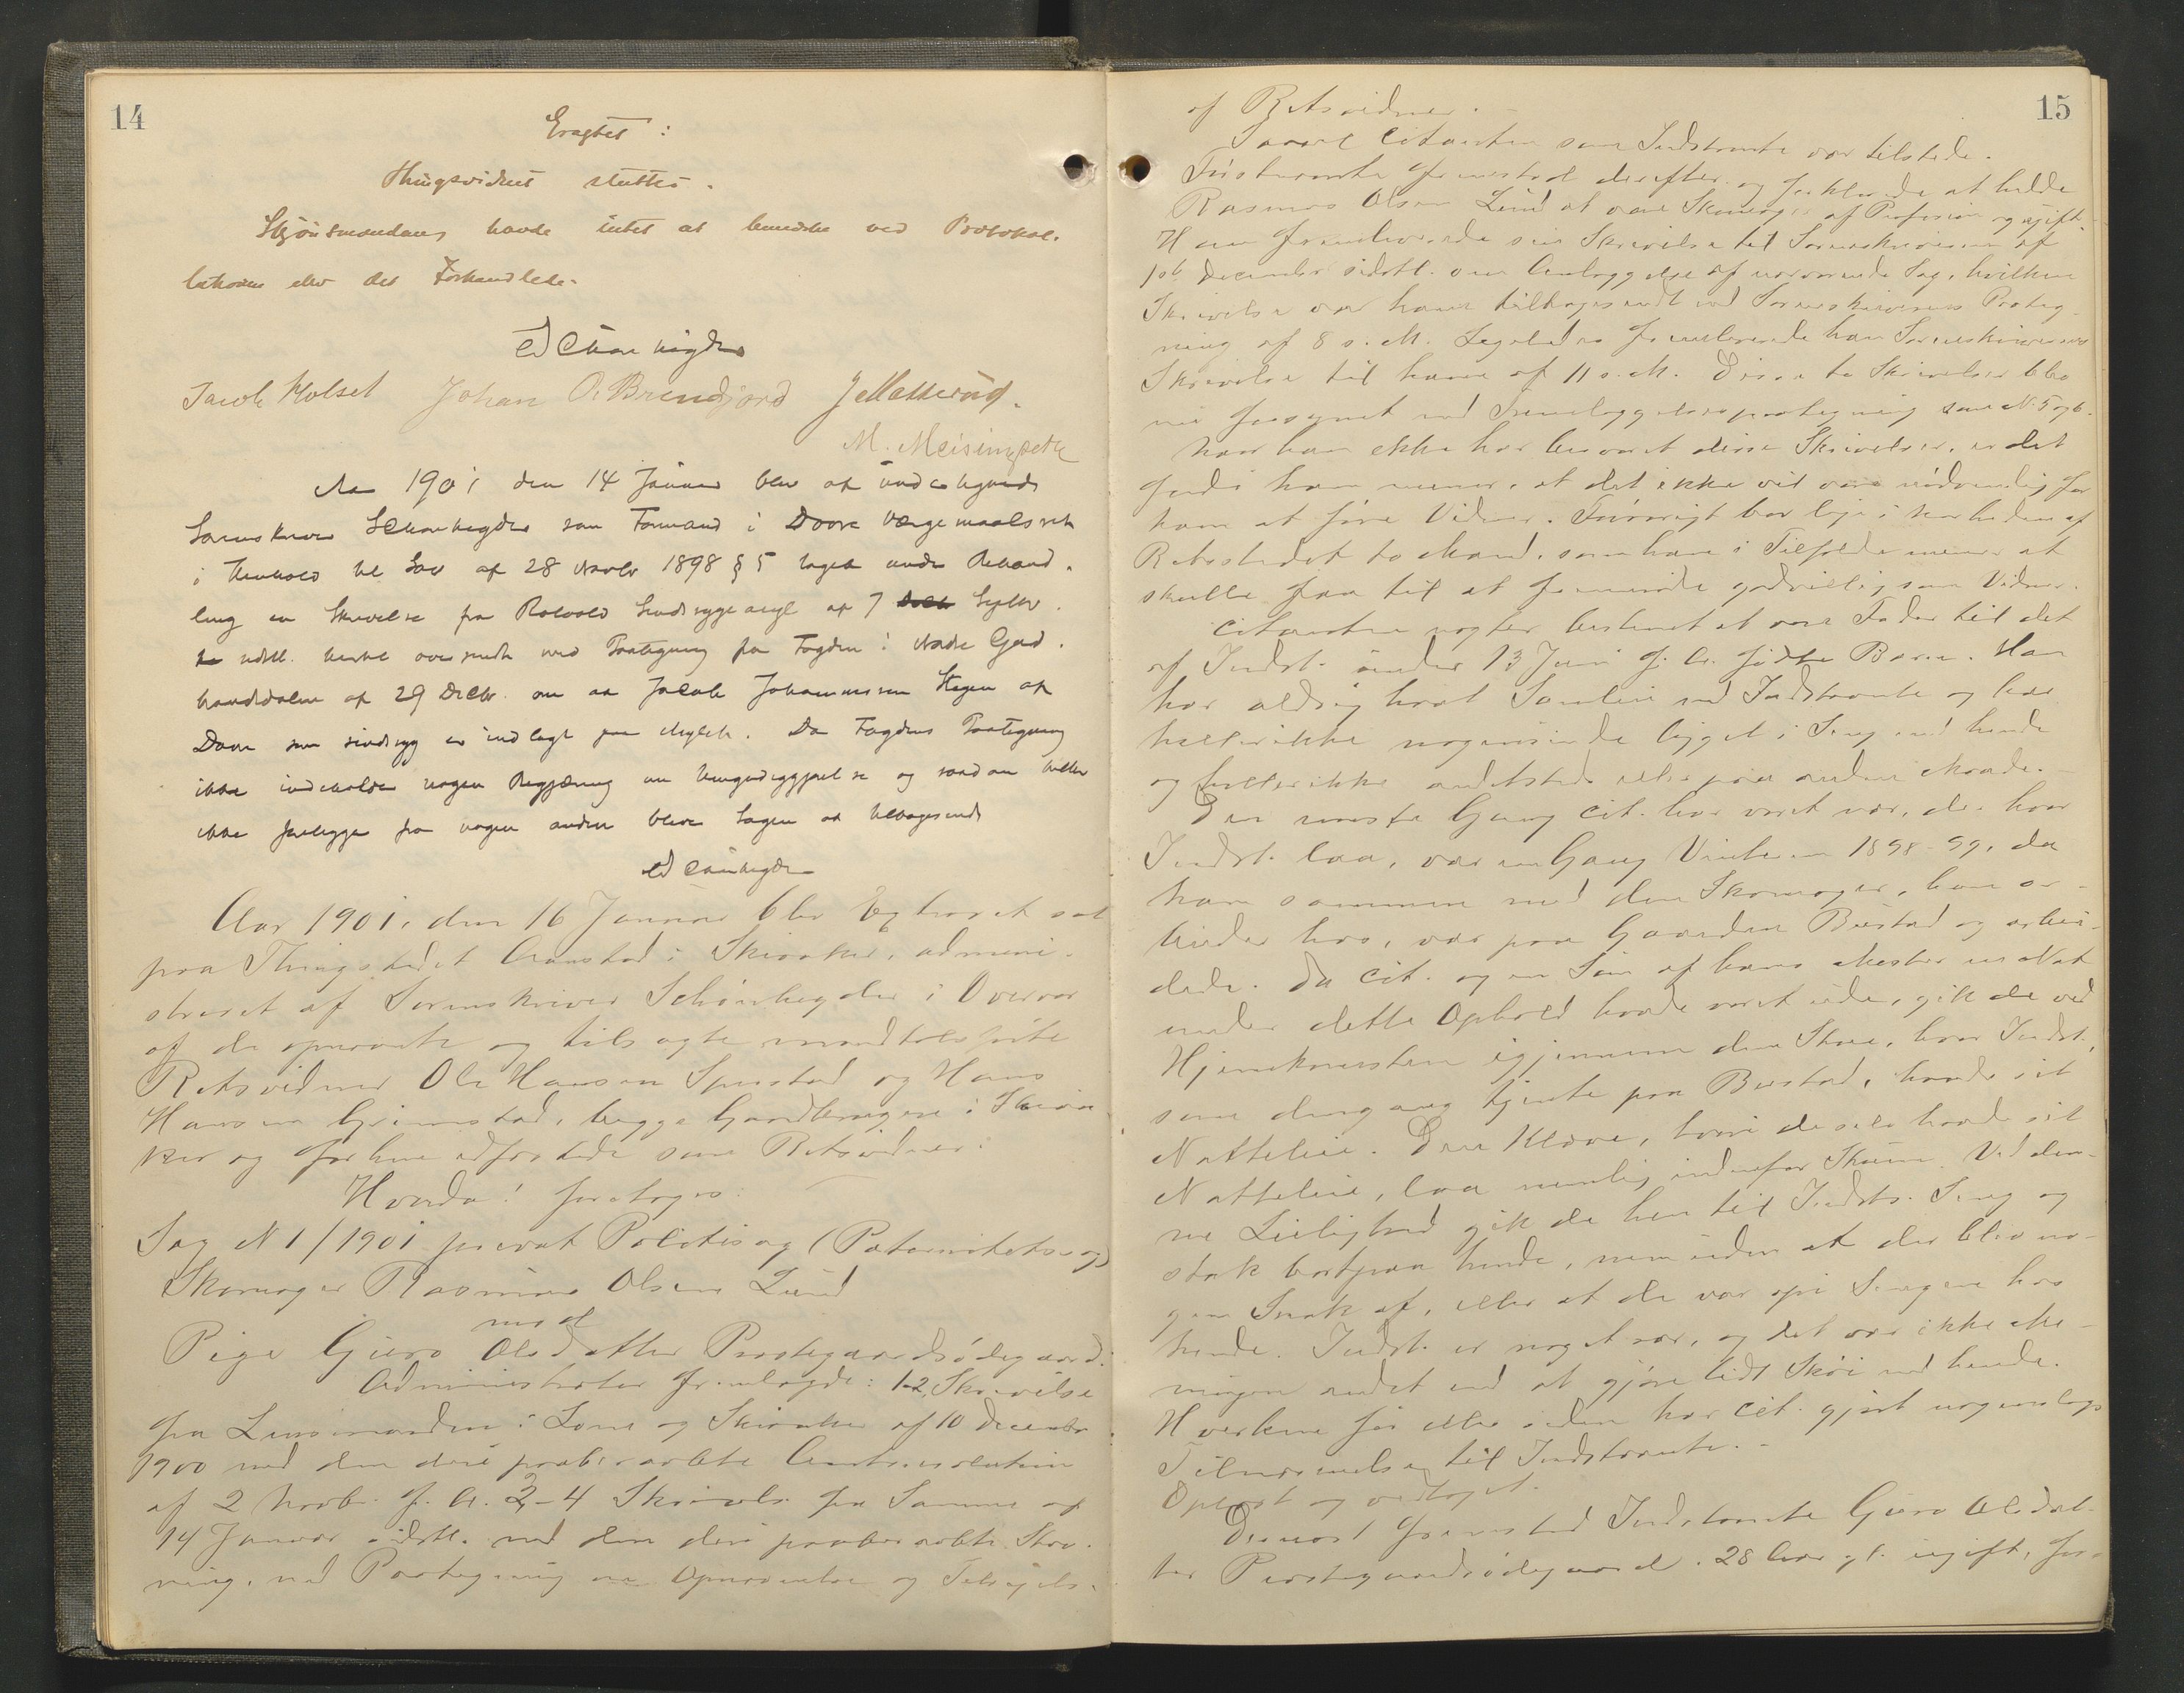 14
Eragtet:
Thingsvidnet sluttes.
Skjønsmændene havde intet at bemerke ved Protokol-
lationen eller det Forhandlede.
Jacob Kolset Johan O. Brendjord
Aar 1901 den 14 Januar blev af undertegnede
Sorenskriver som Formand i Dovre Værgemaalsret
i Henhold til Lov af 28 Novbr 1898 § 5 taget under Behand-
ling en Skrivelse fra Rotvold Sindssygeasyl af 7 Septbr.
sidstl. hertil oversendt med Paategning fra Fogden i Nordre Gud-
brandsdalen af 29 Decbr. om at Jacob Johannessen Hagen af
Dovre som sindssyg er indlagt paa Asylet. Da Fogdens Paategning
ikke indeholder nogen Begjæring om Umyndiggjørelse og saadan heller
ikke foreligger fra nogen anden blev Sagen at tilbagesende
Aar 1901, den 16 Januar blev Extraret sat
paa Thingstedet Aanstad i Skiaaker, admini-
streret af Sorenskriver i Overvær
af de opnævnte og tilsagte mandtalsførte
Retsvidner Ole Hansen og Hans
Hansen Grimstad, begge Gaardbrugere i Skiaa-
ker og forhen edfæstede som Retsvidner.
Hvorda! foretoges:
Sag N 1/1901 privat Politisag (Paternitetssag)
Skomager Rasmus Olsen Lund
mod
Pige Guro Olsdatter Præstegaardsødegaard.
Administrator fremlagde: 1-2, Skrivelse
fra Lensmanden i Lom og Skiaaker af 10 December
1900 med den deri paaberaabte Amtsresolution
af 2 Novbr. f. A. 3-4 Skrivelse fra Samme af
14 Januar sidstl. med den deri paaberaabte Stev-
ning, med Paategning om Opnævnelse og Tilsigelse
15
af Retsvidner.
Saavel Citanten som Indstevnte var tilstede.
Førstnævnte fremstod derefter og forklarede at hedde
Rasmus Olsen Lund at være Skomager af Profession og ugift.
Han fremleverede sin Skrivelse til Sorenskriveren af
1st December sidstl. om Anlæggelse af nærværende Sag, hvilken
Skrivelse var ham tilbagesendt med Sorenskriverens Paateg-
ning af 8 s. M. Ligeledes fremleverede han Sorenskriverens
Skrivelse til ham af 11 s. M. Disse to Skrivelser blev
nu forsynet med Fremlæggelsespaategning som N. 5 og 6.
Naar han ikke har besvaret disse Skrivelser, er det
fordi han mener, at det ikke vil være nødvendig for
ham at føre Vidner. Forøvrigt bor lige i Nærheden af
Retsstedet to Mænd, som han i Tilfælde mener at
skulle faa til at fremmøde godvillig som Vidner.
Citanten negter bestemt at være Fader til det
af Indst. under 13 Juni f. A. fødte Barn. Han
har aldrig havt Samleie med Indstevnte og har
heller ikke nogensinde ligget i Seng med hende
og heller ikke andetsteds eller paa anden Maade.
Den eneste Gang Cit. har været nær, der hvor
Indst. laa, var en Gang Vinteren 1898-99, da
han sammen med den Skomager, han ar-
beider hos, var paa Gaarden Bustad og arbei-
dede. Da Cit. og en Søn af hans Mester en Nat
under dette Ophold havde været ude, gik de ved
Hjemkomsten igjennem den Stue, hvor Indst.,
som dengang tjente paa Bustad, havde sit
Natteleie. Den Kleve, hvori de selv havde sit
Natteleie, laa nemlig indenfor Stuen. Ved den-
ne Leilighed gik de hen til Indsts. Seng og
stak bortpaa hende, men uden at der blev no-
gen Snak af, eller at de var opi Sengen hos
hende. Indst. er noget sær, og det var ikke Me-
ningen andet end at gjøre lidt Skøi med hende.
Hverken før eller siden har Cit. gjort nogenslags
Tilnærmelse til Indstevnte.
Oplæst og vedtaget.
Dernæst fremstod Indstevnte Guro Olsdat-
ter Præstegaardsødegaard. 28 Aar gl. ugift, for-